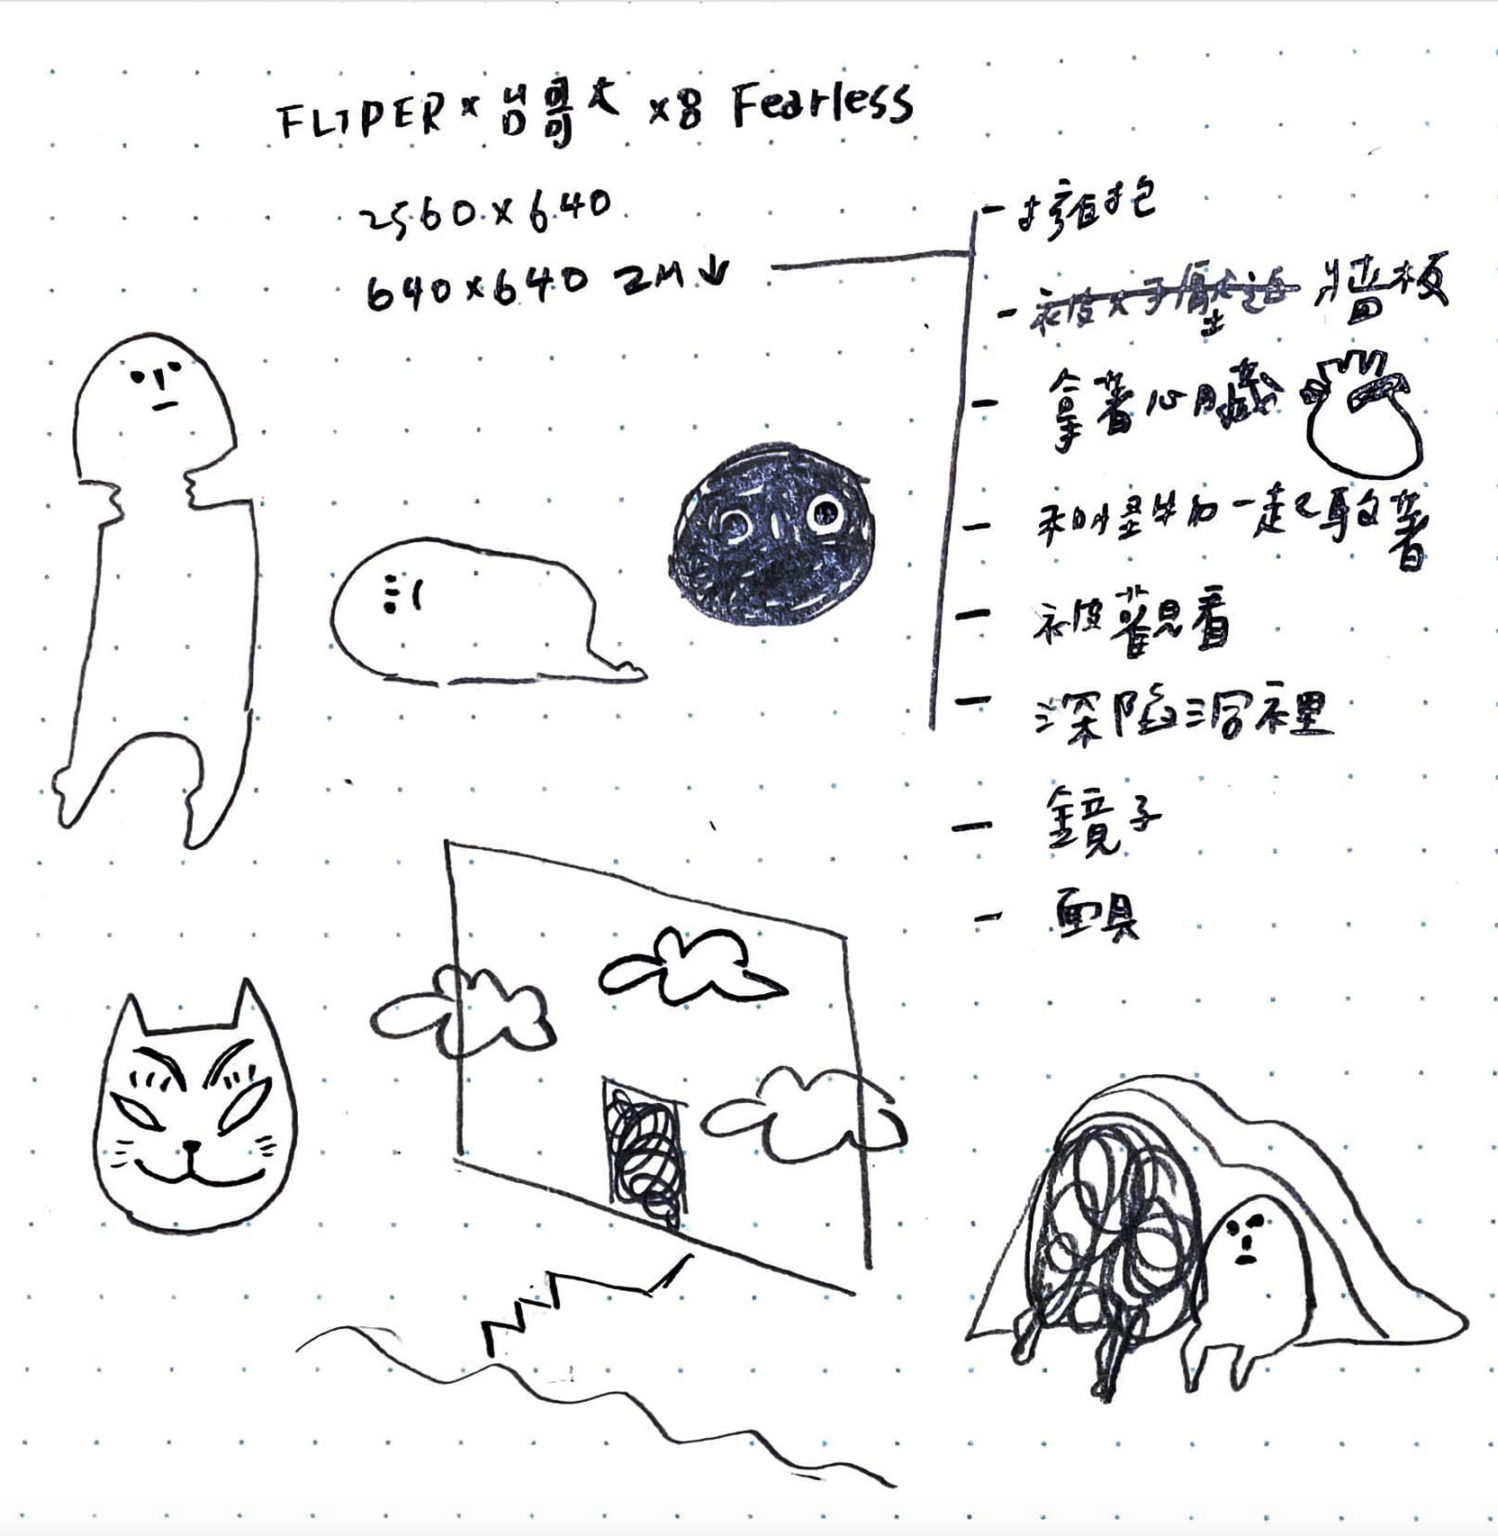 FLIPER × 台哥大 ×8 Fearless
2560×640
640×640 2M↓
- 擁抱
- 牆板
- 拿著心臟
- 和怪物一起馱著
- 被觀看
- 深陷洞裡
- 鏡子
- 面具